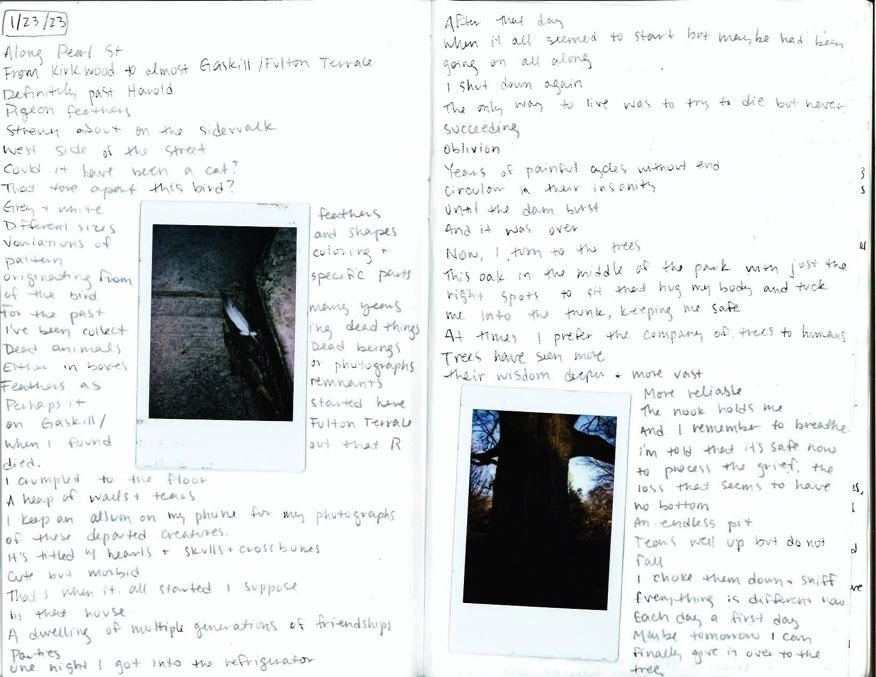 1/23/23
Along Pearl St
From Kirkwood to almost Gaskill/Fulton Terrace
Definitely past Harold
Pigeon feathers
Strewn about on the sidewalk
West side of the street
Could it have been a cat?
That tore apart this bird?
Grey + white feathers
Different sizes and shapes
Variations of coloring +
pattern specific parts
originating from
of the bird
For the past many years
I've been collect ing dead things
Dead animals Dead beings
Either in boxes or photographs
Feathers as remnants
Perhaps it started here
on Gaskill/ Fulton Terrace
when I found out that R
died.
I crumpled to the floor
A heap of wails + tears
I keep an album on my phone for my photographs
of these departed creatures.
It's titled w/ hearts + skulls + crossbones
Cute but morbid
That's when it all started I suppose
In that house
A dwelling of multiple generations of friendships
Parties
One night I got into the refrigerator
After that day
When it all seemed to start but maybe had been
going on all along
I shut down again
The only way to live was to try to die but never
succeeding
Oblivion
Years of painful cycles without end
Circular in their insanity
Until the dam burst
And it was over
Now, I turn to the trees
This oak in the middle of the park with just the
right spots to sit that hug my body and tuck
me into the trunk, keeping me safe
At times I prefer the company of trees to humans
Trees have seen more
their wisdom deeper + more vast
More reliable
The nook holds me
And I remember to breathe
I'm told that it's safe now
to process the grief, the
loss that seems to have
no bottom
An endless pit
Tears well up but do not
fall
I choke them down + sniff
Everything is different now
Each day a first day
Maybe tomorrow I can
finally give it over to the
tree